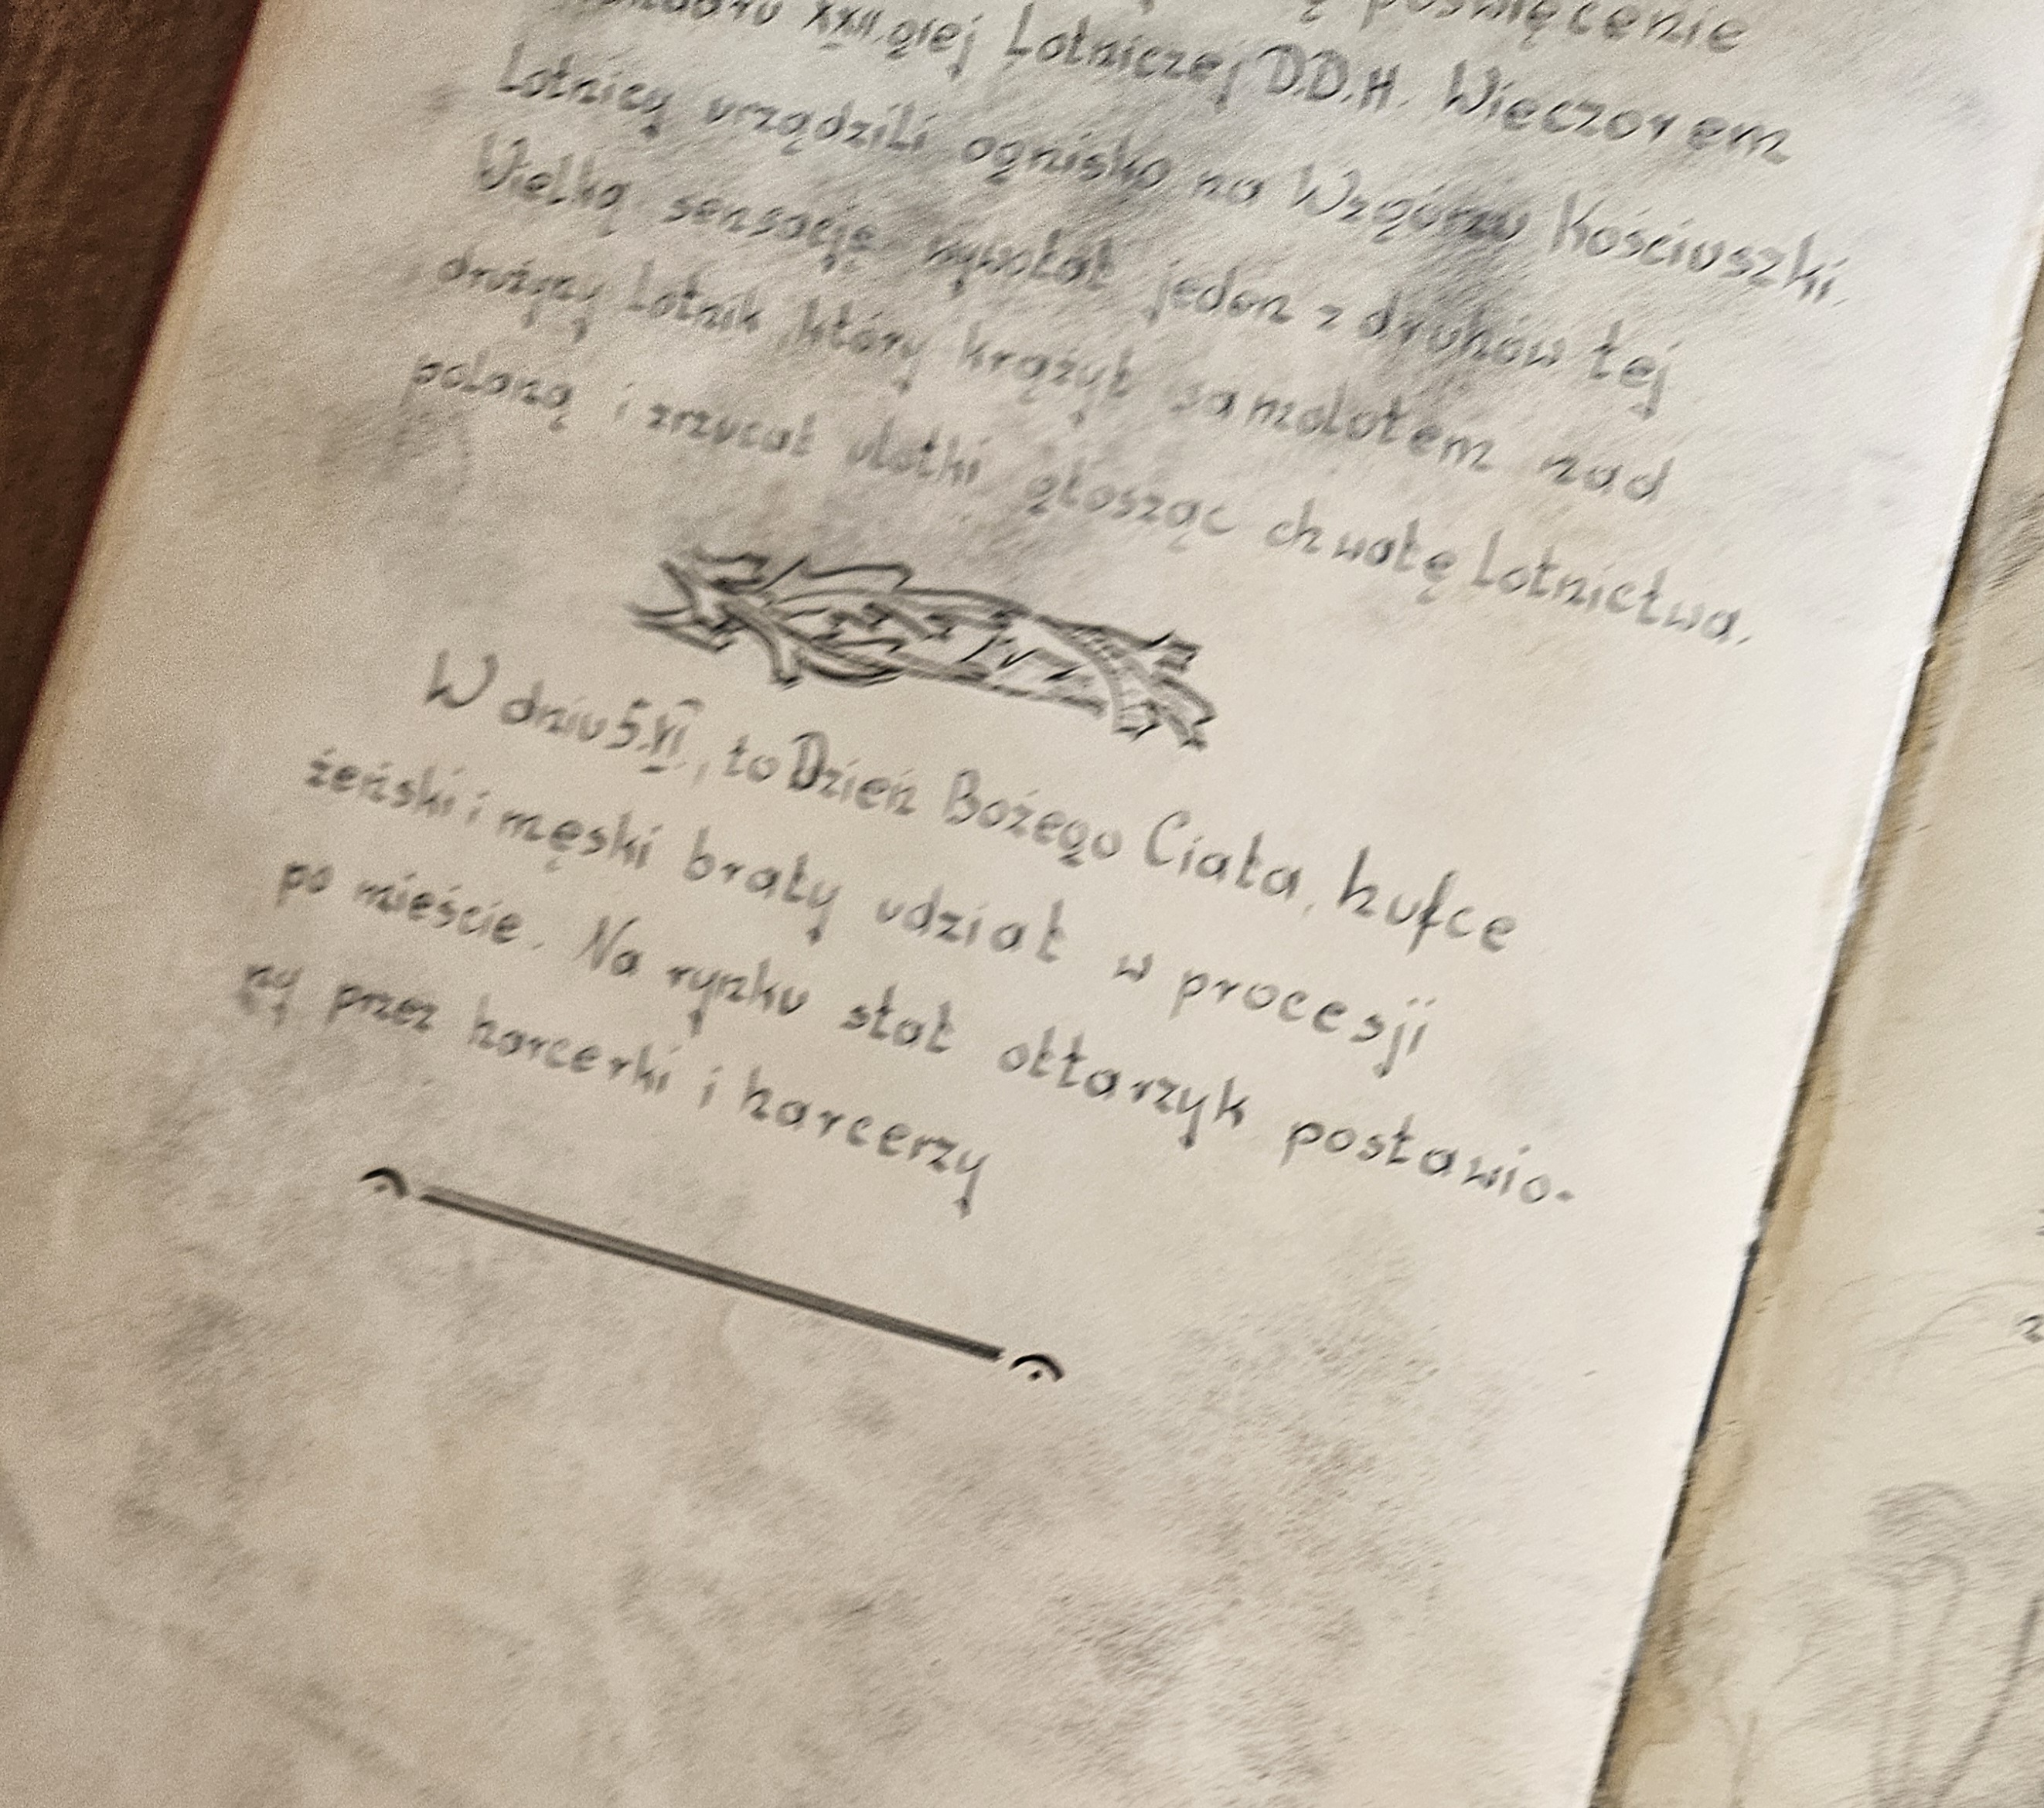 poświęcenie
XXII.giej Lotniczej D.D.H. Wieczorem
Lotnicy urządzili ognisko na Wzgórzu Kościuszki.
Wielką sensację wywołał jeden z druhów tej
drużyny Lotnik, który krążył samolotem nad
polaną i zrzucał ulotki głosząc chwałę Lotnictwa.
W dniu 5.VI, to Dzień Bożego Ciała, hufce
żeński i męski brały udział w procesji
po mieście. Na rynku stał ołtarzyk postawio-
ny przez harcerki i harcerzy